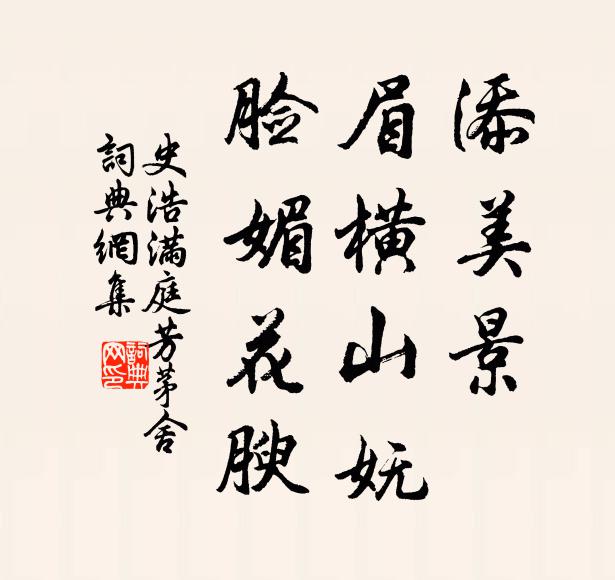 添美景
眉横山妩
脸媚花腴
史浩满庭芳茅舍
詞典網集
詞典
网印